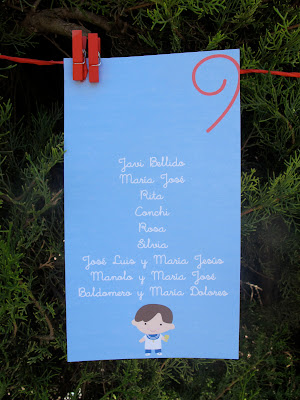 9
Javi Bellido
María José
Rita
Conchi
Rosa
Silvia
José Luis y María Jesús
Manolo y María José
Baldomero y María Dolores